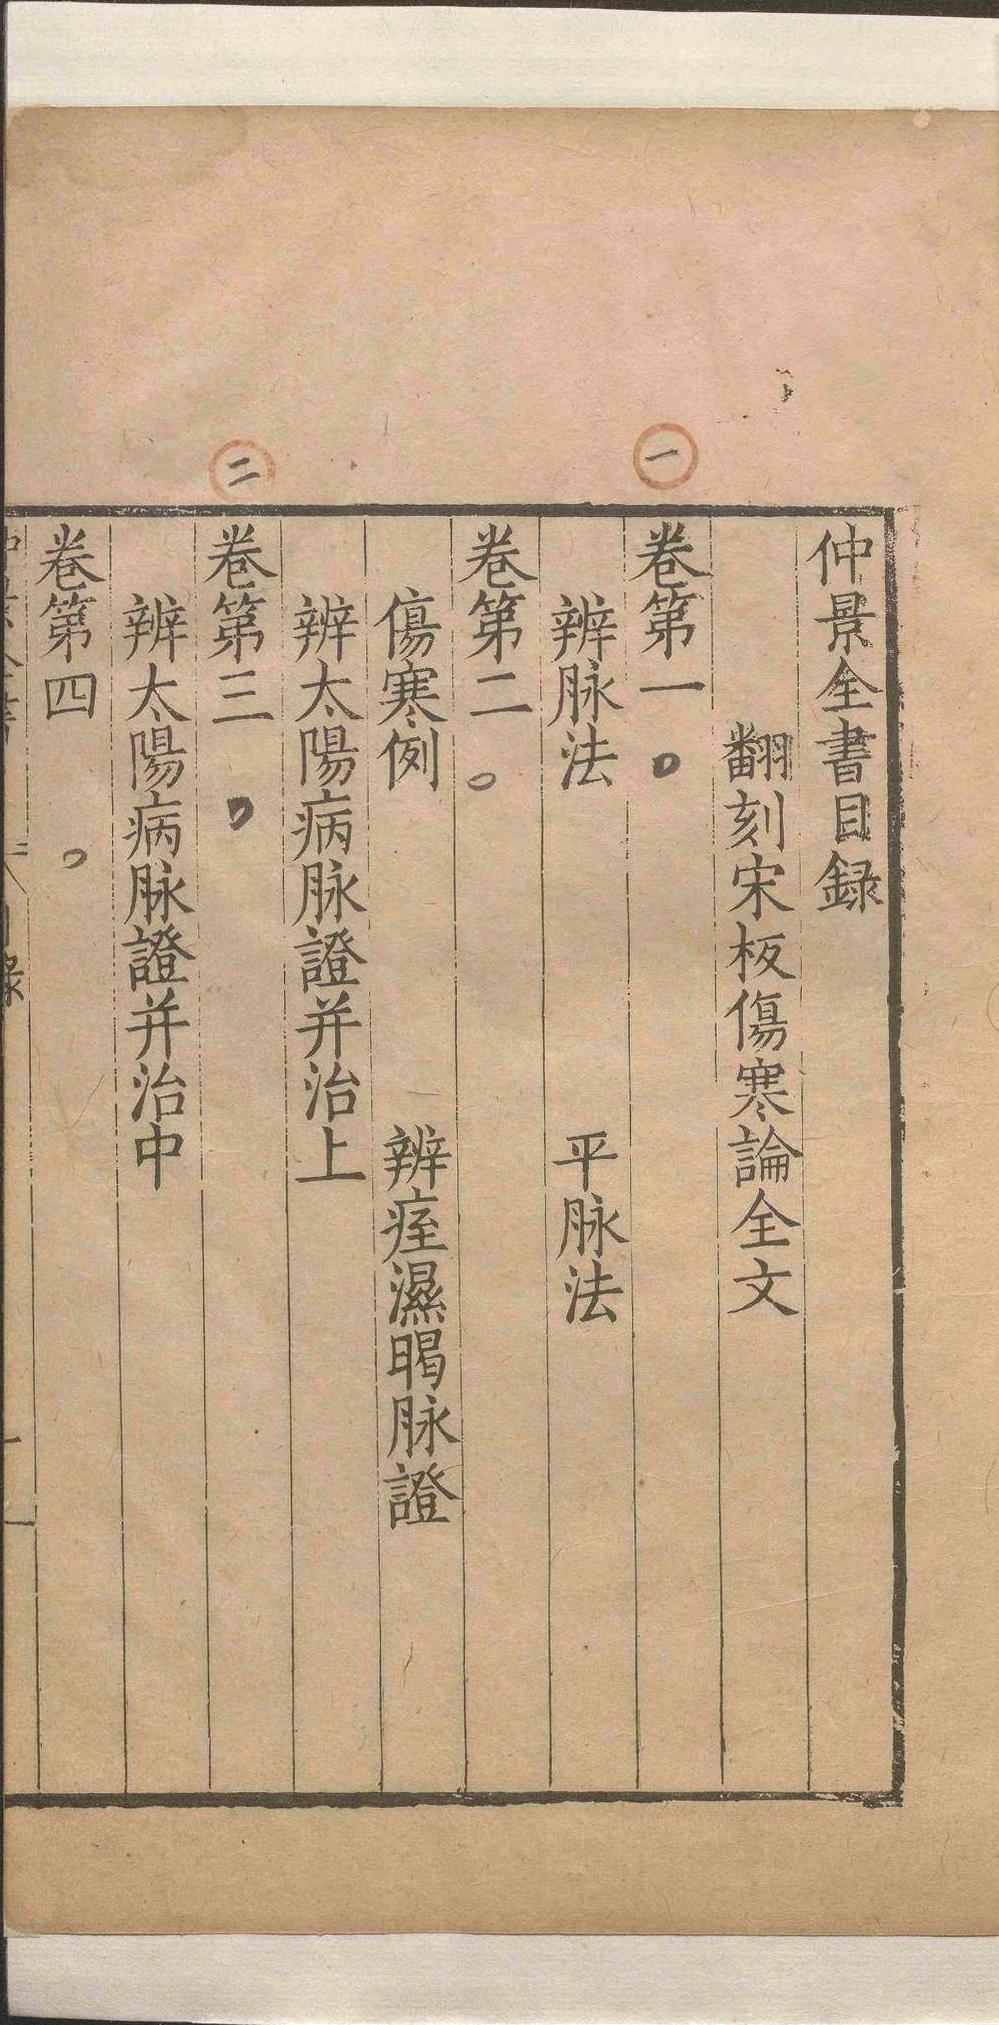 仲景全書目録
翻刻宋板傷寒論全文
一
卷第一
辨脉法 平脉法
卷第二
傷寒例 辨痓濕暍脉證
辨太陽病脉證并治上
二
卷第三
辨太陽病脉證并治中
卷第四